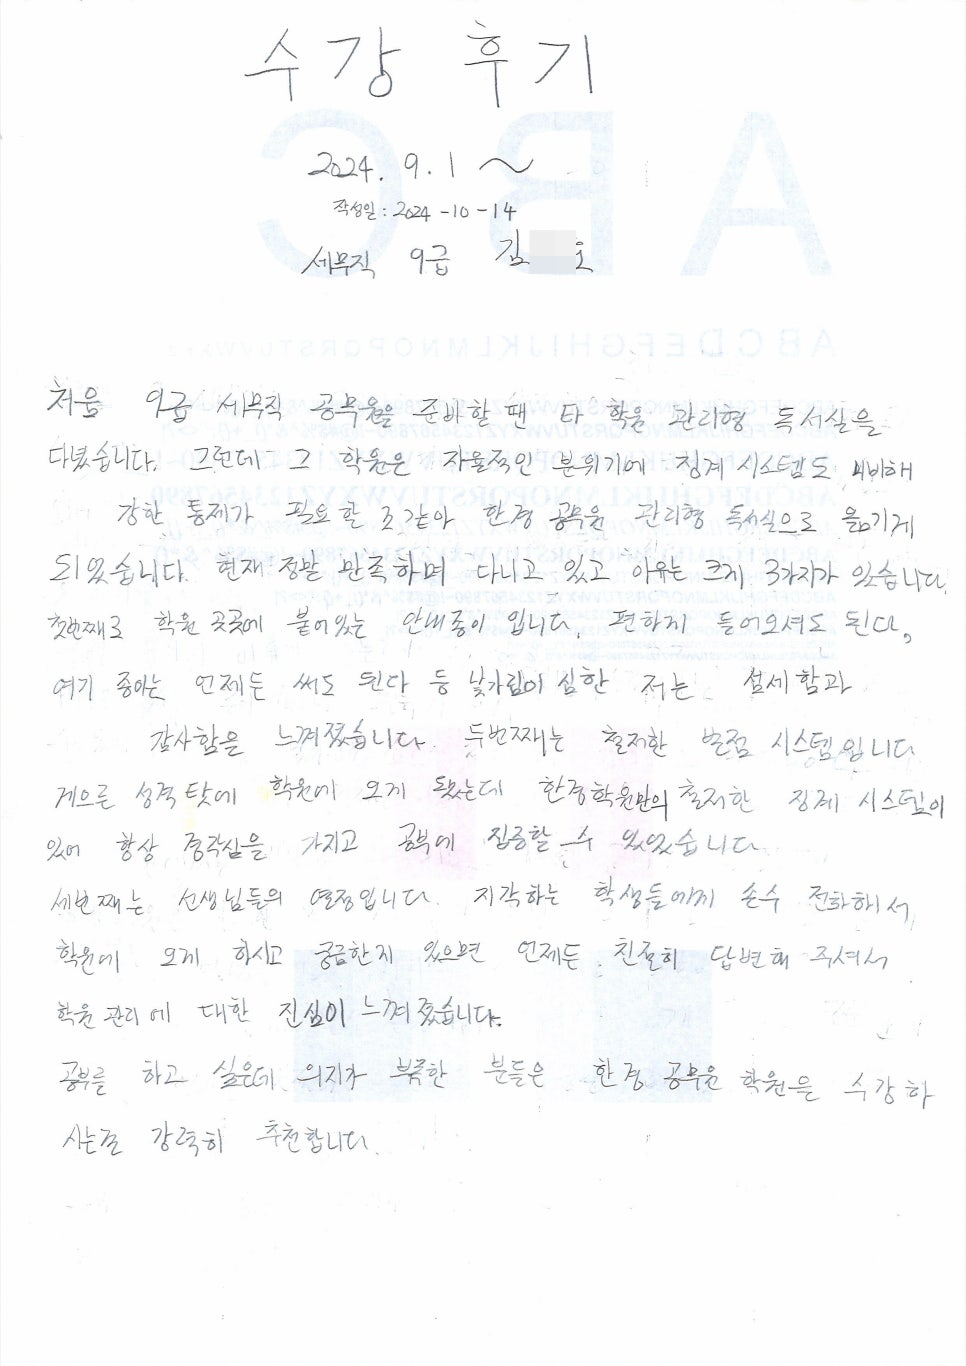 수강 후기
2024. 9. 1 ~
작성일 : 2024-10-14
세무직 9급 김 호
처음 9급 세무직 공무원을 준비할 땐 타 학원 관리형 독서실을
다녔습니다. 그런데 그 학원은 자율적인 분위기에 징계 시스템도 미비해
강한 통제가 필요할 것 같아 한경 공무원 관리형 독서실으로 옮기게
되었습니다. 현재 정말 만족하며 다니고 있고 이유는 크게 3가지가 있습니다.
첫번째로 학원 곳곳에 붙어있는 안내종이 입니다. 편하게 들어오셔도 된다,
여기 종이는 언제든 써도 된다 등 낯가림이 심한 저는 섬세함과
감사함은 느껴졌습니다. 두번째는 철저한 벌점 시스템입니다
게으른 성격 탓에 학원에 오게 됐는데 한경학원만의 철저한 징계 시스템이
있어 항상 경각심을 가지고 공부에 집중할 수 있었습니다
세번째는 선생님들의 열정입니다. 지각하는 학생들에게 손수 전화하셔
학원에 오게 하시고 궁금한게 있으면 언제든 친절히 답변해 주셔서
학원 관리에 대한 진심이 느껴졌습니다.
공부를 하고 싶은데 의지가 부족한 분들은 한경 공무원 학원을 수강하
시는걸 강력히 추천합니다.